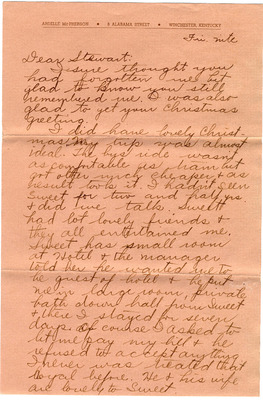 ARGELLE McPHERSON • 8 ALABAMA STREET • WINCHESTER, KENTUCKY
Fri. nite
Dear Stewart,
I sure thought you
had forgotten me but
glad to know you still
remembered me. I was also
glad to get your Christmas
greeting.
I did have lovely Christ-
mas. My trip was almost
ideal. The bus ride wasn't
as comfortable as train but
got other much cheaper & as
result took it. I hadn't seen
Sweet for two and half yrs
& did we talk. Sweet
had lot lovely friends &
they all entertained me.
Sweet has small room
at Hotel & the manager
told her he wanted me to
be guest of hotel & he put
me in large room, private
bath down hall from Sweet
& there I stayed for seven
days. Of course I asked to
let me pay my bill & he
refused to accept anything.
I never was treated that
royal before. He & his wife
are lovely to Sweet.